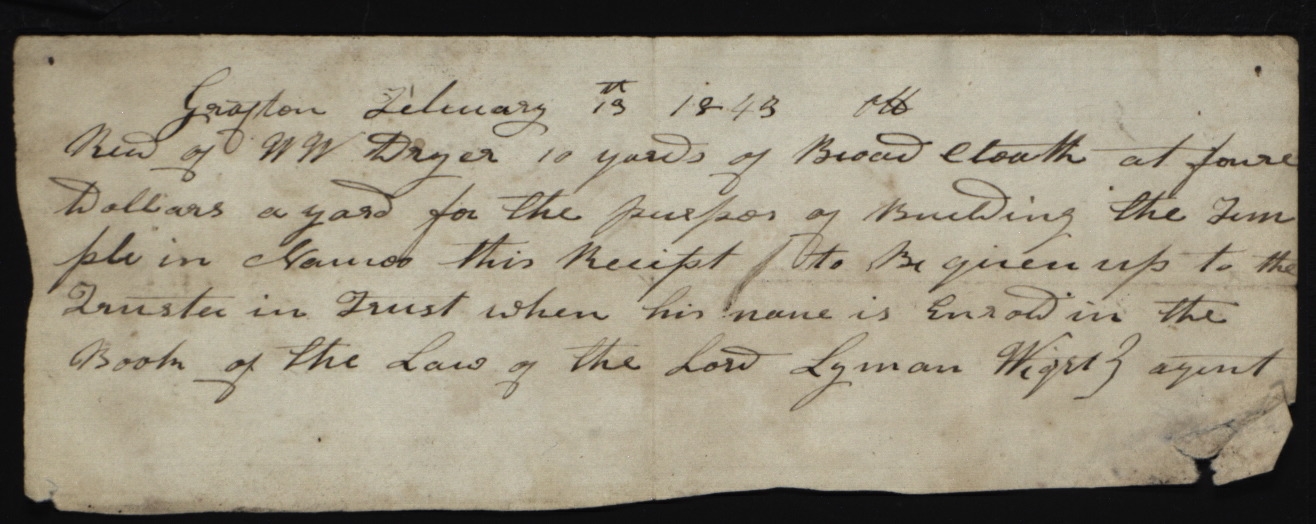 Grafton February 13th 1843 Oh
Recd of WW Dryer 10 yards of Broad Cloath at foure
Dollars a yard for the purpos of Building the Tem
ple in Nauvoo this Receipt to Be given up to the
Trustee in Trust when his name is Enrold in the
Book of the Law of the Lord Lyman Wight agent